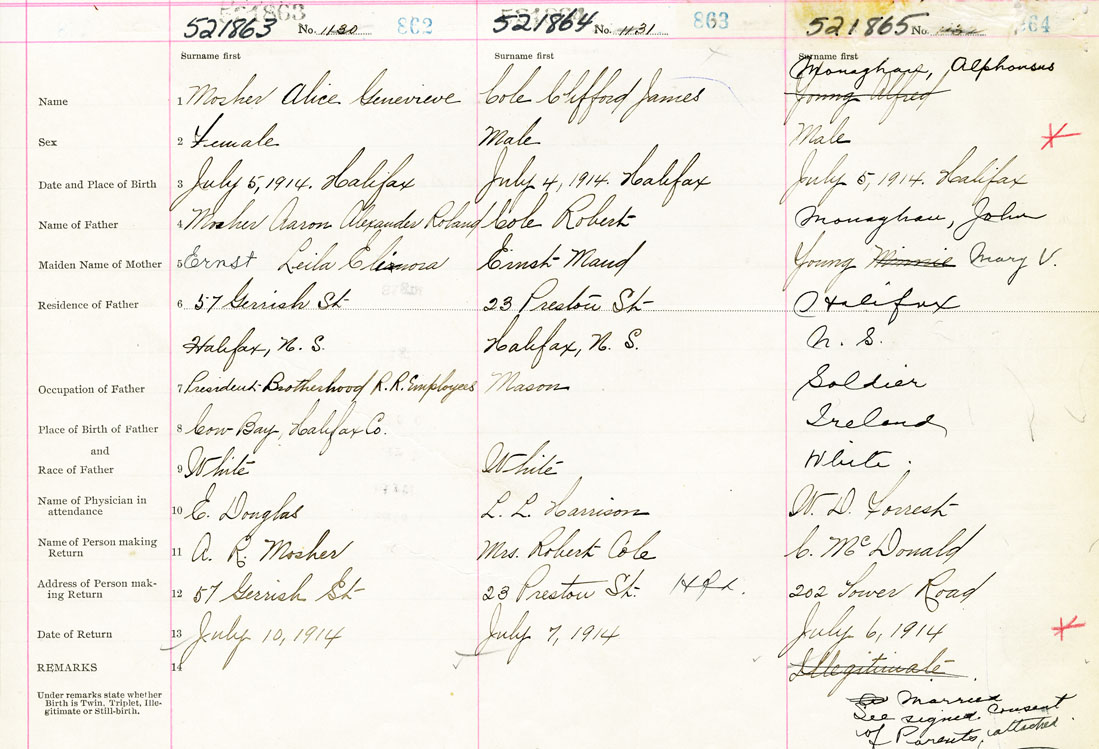 521863 No. 1130 862 521864 No. 1131 863 521865 No. 864
Surname first Surname first Surname first
Monaghan, Alphonsus
Name 1 Mosher Alice Genevieve Cole Clifford James Young Alfred
Sex 2 Female Male Male
Date and Place of Birth 3 July 5, 1914. Halifax July 4, 1914. Halifax July 5, 1914. Halifax
Name of Father 4 Mosher Aaron Alexander Roland Cole Robert Monaghan, John
Maiden Name of Mother 5 Ernst Leila Elinora Ernst Maud Young Minnie Mary V.
Residence of Father 6 57 Gerrish St 23 Preston St Halifax
Halifax, N. S. Halifax, N. S. N. S.
Occupation of Father 7 President Brotherhood R.R. Employees Mason Soldier
Place of Birth of Father 8 Cow Bay, Halifax Co. Ireland
and
Race of Father 9 White White White.
Name of Physician in
attendance 10 E. Douglas L. L. Harrison W. D. Forrest
Name of Person making
Return 11 A. R. Mosher Mrs. Robert Cole C. McDonald
Address of Person mak-
ing Return 12 57 Gerrish St 23 Preston St. Hfx. 202 Tower Road
Date of Return 13 July 10, 1914 July 7, 1914 July 6, 1914
REMARKS 14 Illegitimate.
Under remarks state whether
Birth is Twin, Triplet, Ille-
gitimate or Still-birth.
Married
See signed consent
of Parents, attached.